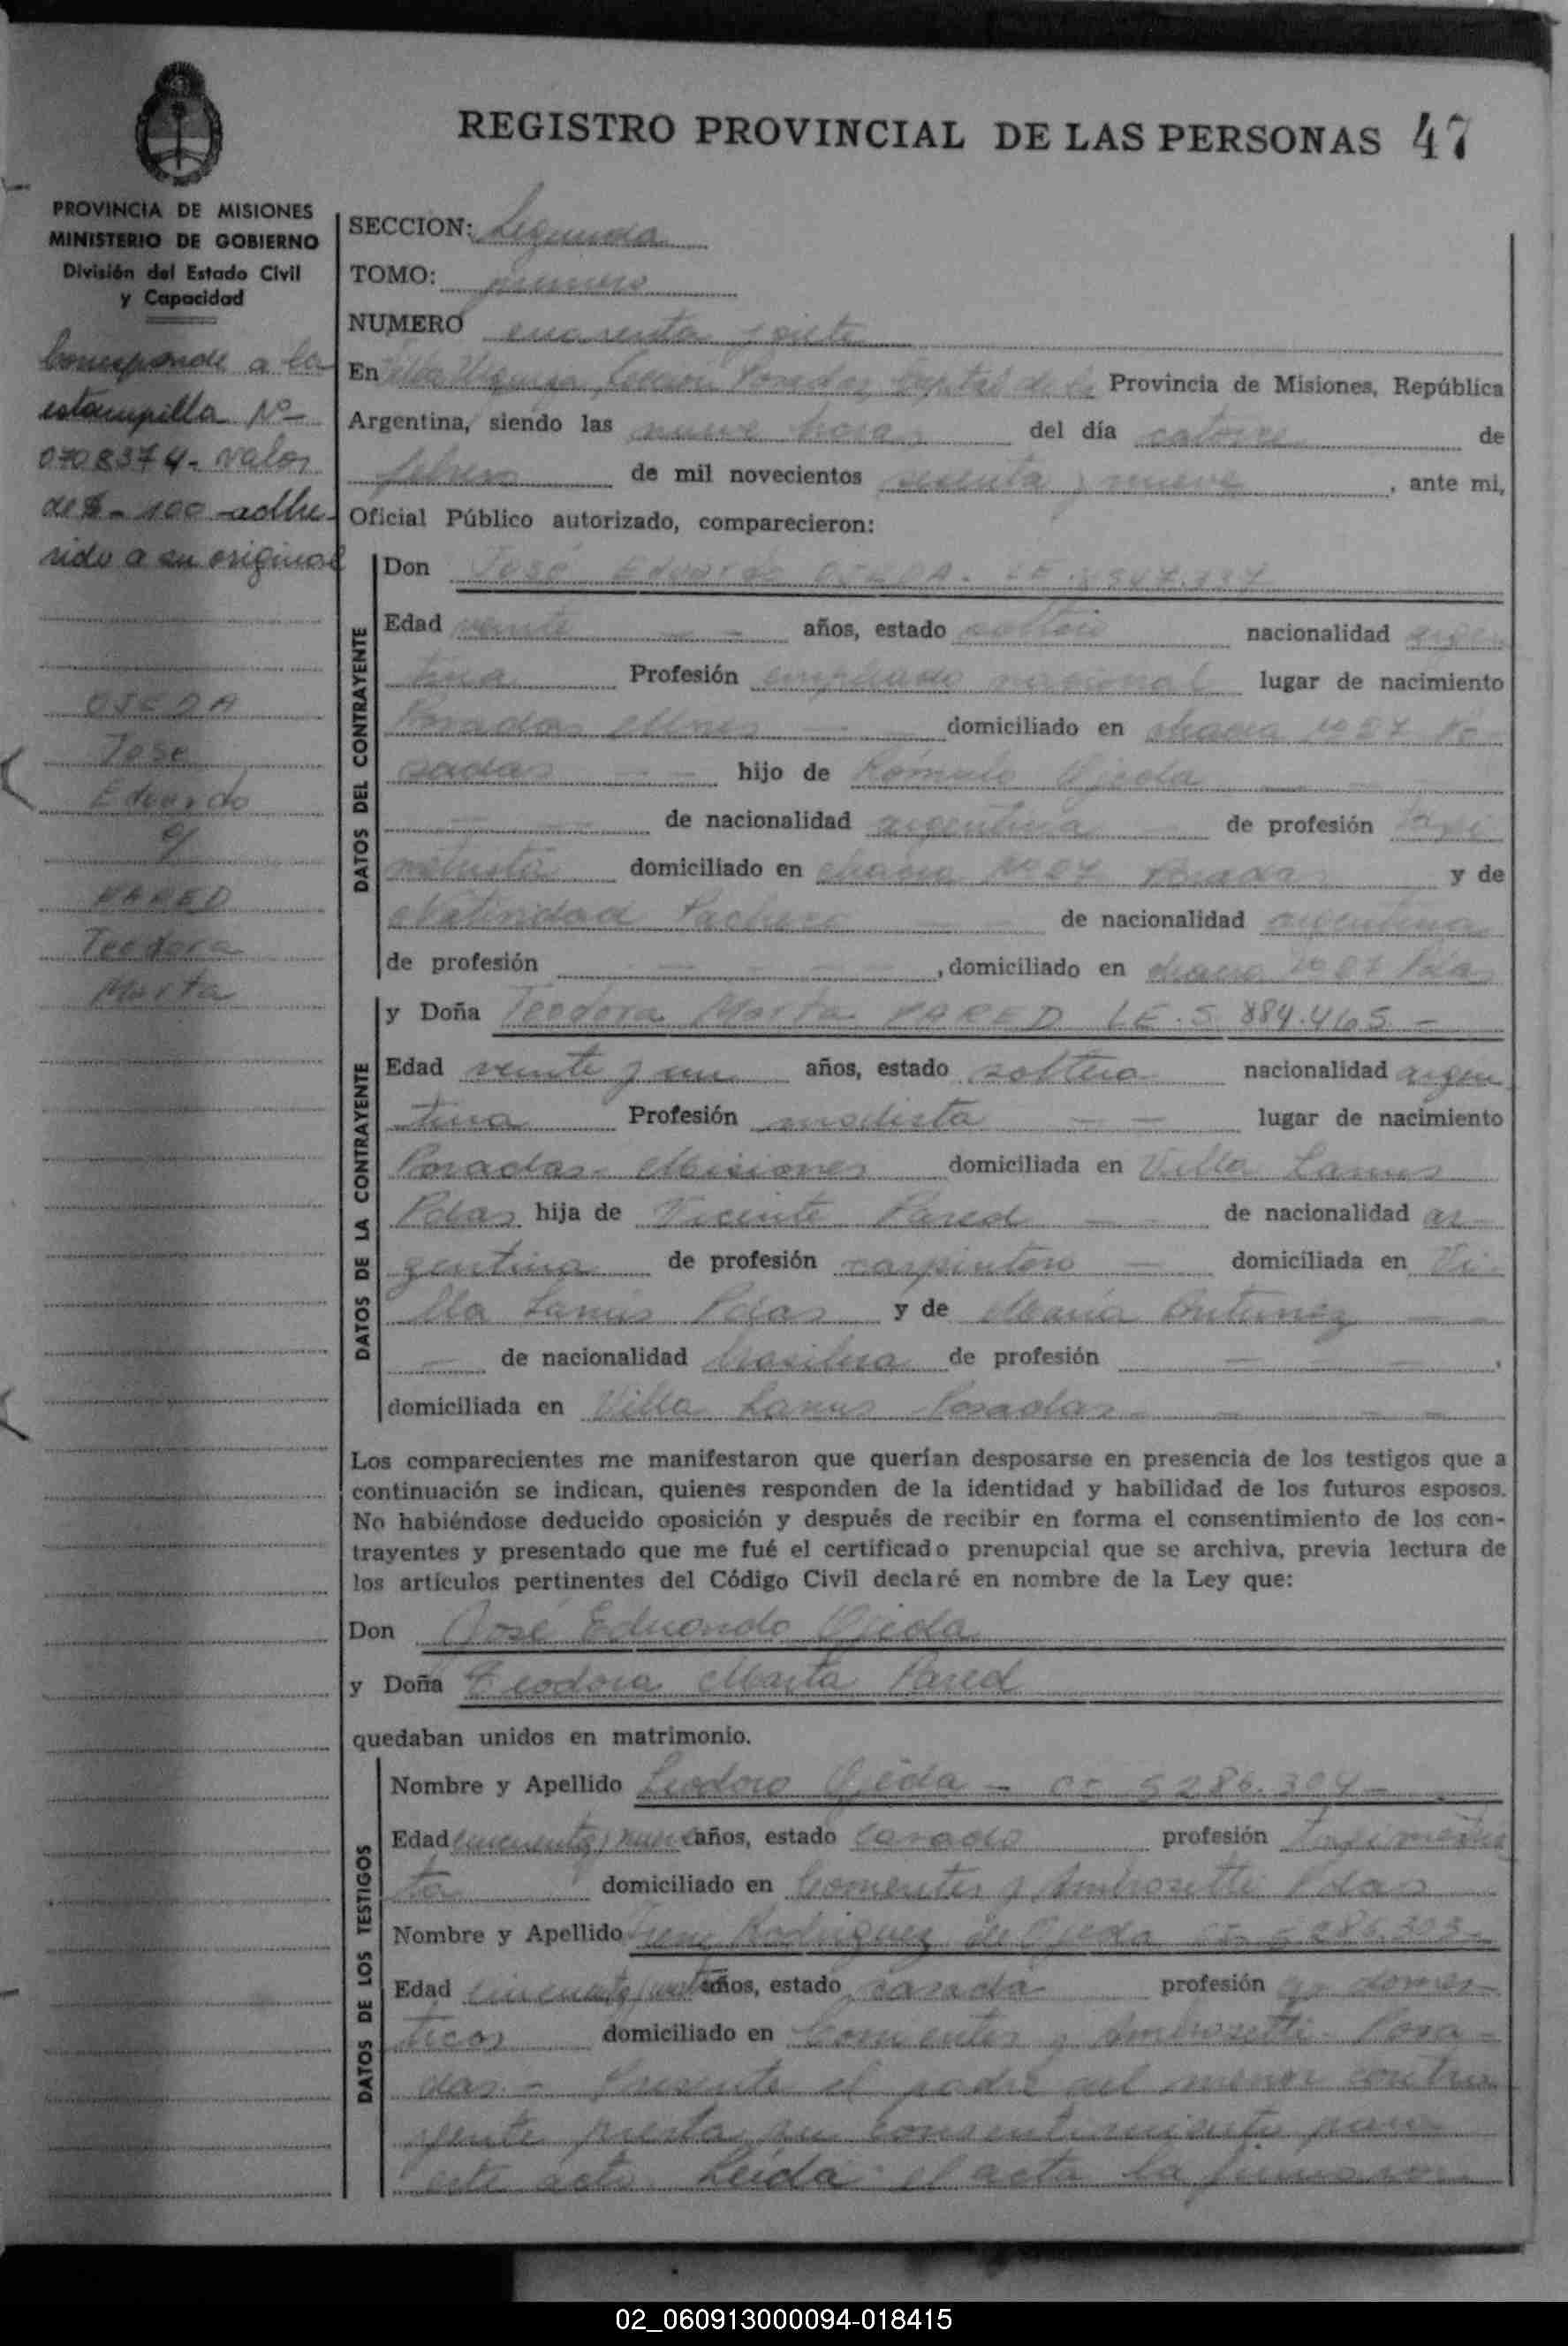 REGISTRO PROVINCIAL DE LAS PERSONAS 47
PROVINCIA DE MISIONES
MINISTERIO DE GOBIERNO
División del Estado Civil
y Capacidad
Corresponde a la
estampilla Nº
0708374 - valor
de $ - 100 - adhe-
rido a su original
OJEDA
José
Eduardo
PARED
Teodora
Marta
SECCION: Segunda
TOMO: primero
NUMERO cuarenta y siete
En Posadas Capital de la Provincia de Misiones, República
Argentina, siendo las nueve horas del día catorce de
febrero de mil novecientos sesenta y nueve, ante mi,
Oficial Público autorizado, comparecieron:
DATOS DEL CONTRAYENTE
Don José Eduardo OJEDA -
Edad veinte — — años, estado soltero nacionalidad argen
tina Profesión empleado nacional lugar de nacimiento
Posadas Mnes — — domiciliado en chacra Po-
sadas — — hijo de Rómulo Ojeda — —
— — de nacionalidad argentina de profesión taxi
metrista domiciliado en chacra Posadas y de
Natividad Pacheco de nacionalidad argentina
de profesión — — — —, domiciliado en chacra Pdas
DATOS DE LA CONTRAYENTE
y Doña Teodora Marta PARED L.E. 5.884.465 -
Edad veinte y un años, estado soltera nacionalidad argen
tina Profesión modista — — lugar de nacimiento
Posadas Misiones domiciliada en Villa Lanus
Pdas hija de Vicente Pared — — de nacionalidad ar-
gentina de profesión carpintero — domiciliada en Vi-
lla Lanús Pdas y de María Antunez —
— de nacionalidad brasilera de profesión — — —,
domiciliada en Villa Lanus Posadas - — — —
Los comparecientes me manifestaron que querían desposarse en presencia de los testigos que a
continuación se indican, quienes responden de la identidad y habilidad de los futuros esposos.
No habiéndose deducido oposición y después de recibir en forma el consentimiento de los con-
trayentes y presentado que me fué el certificado prenupcial que se archiva, previa lectura de
los artículos pertinentes del Código Civil declaré en nombre de la Ley que:
Don José Eduardo Ojeda
y Doña Teodora Marta Pared
quedaban unidos en matrimonio.
DATOS DE LOS TESTIGOS
Nombre y Apellido Ojeda - 5286.304 -
Edad cincuenta y nueve años, estado casado profesión taximetris
ta domiciliado en Corrientes y Ambrosetti Pdas
Nombre y Apellido Rodriguez de Ojeda
Edad cincuenta años, estado casada profesión qq domes-
ticos domiciliado en Corrientes y Ambrosetti - Posa-
das - Presente el padre del menor contra
yente presta su consentimiento para
este acto. Leída el acta la firmaron
02_060913000094-018415